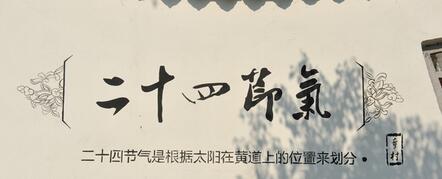 二十四節氣
二十四节气是根据太阳在黄道上的位置来划分·